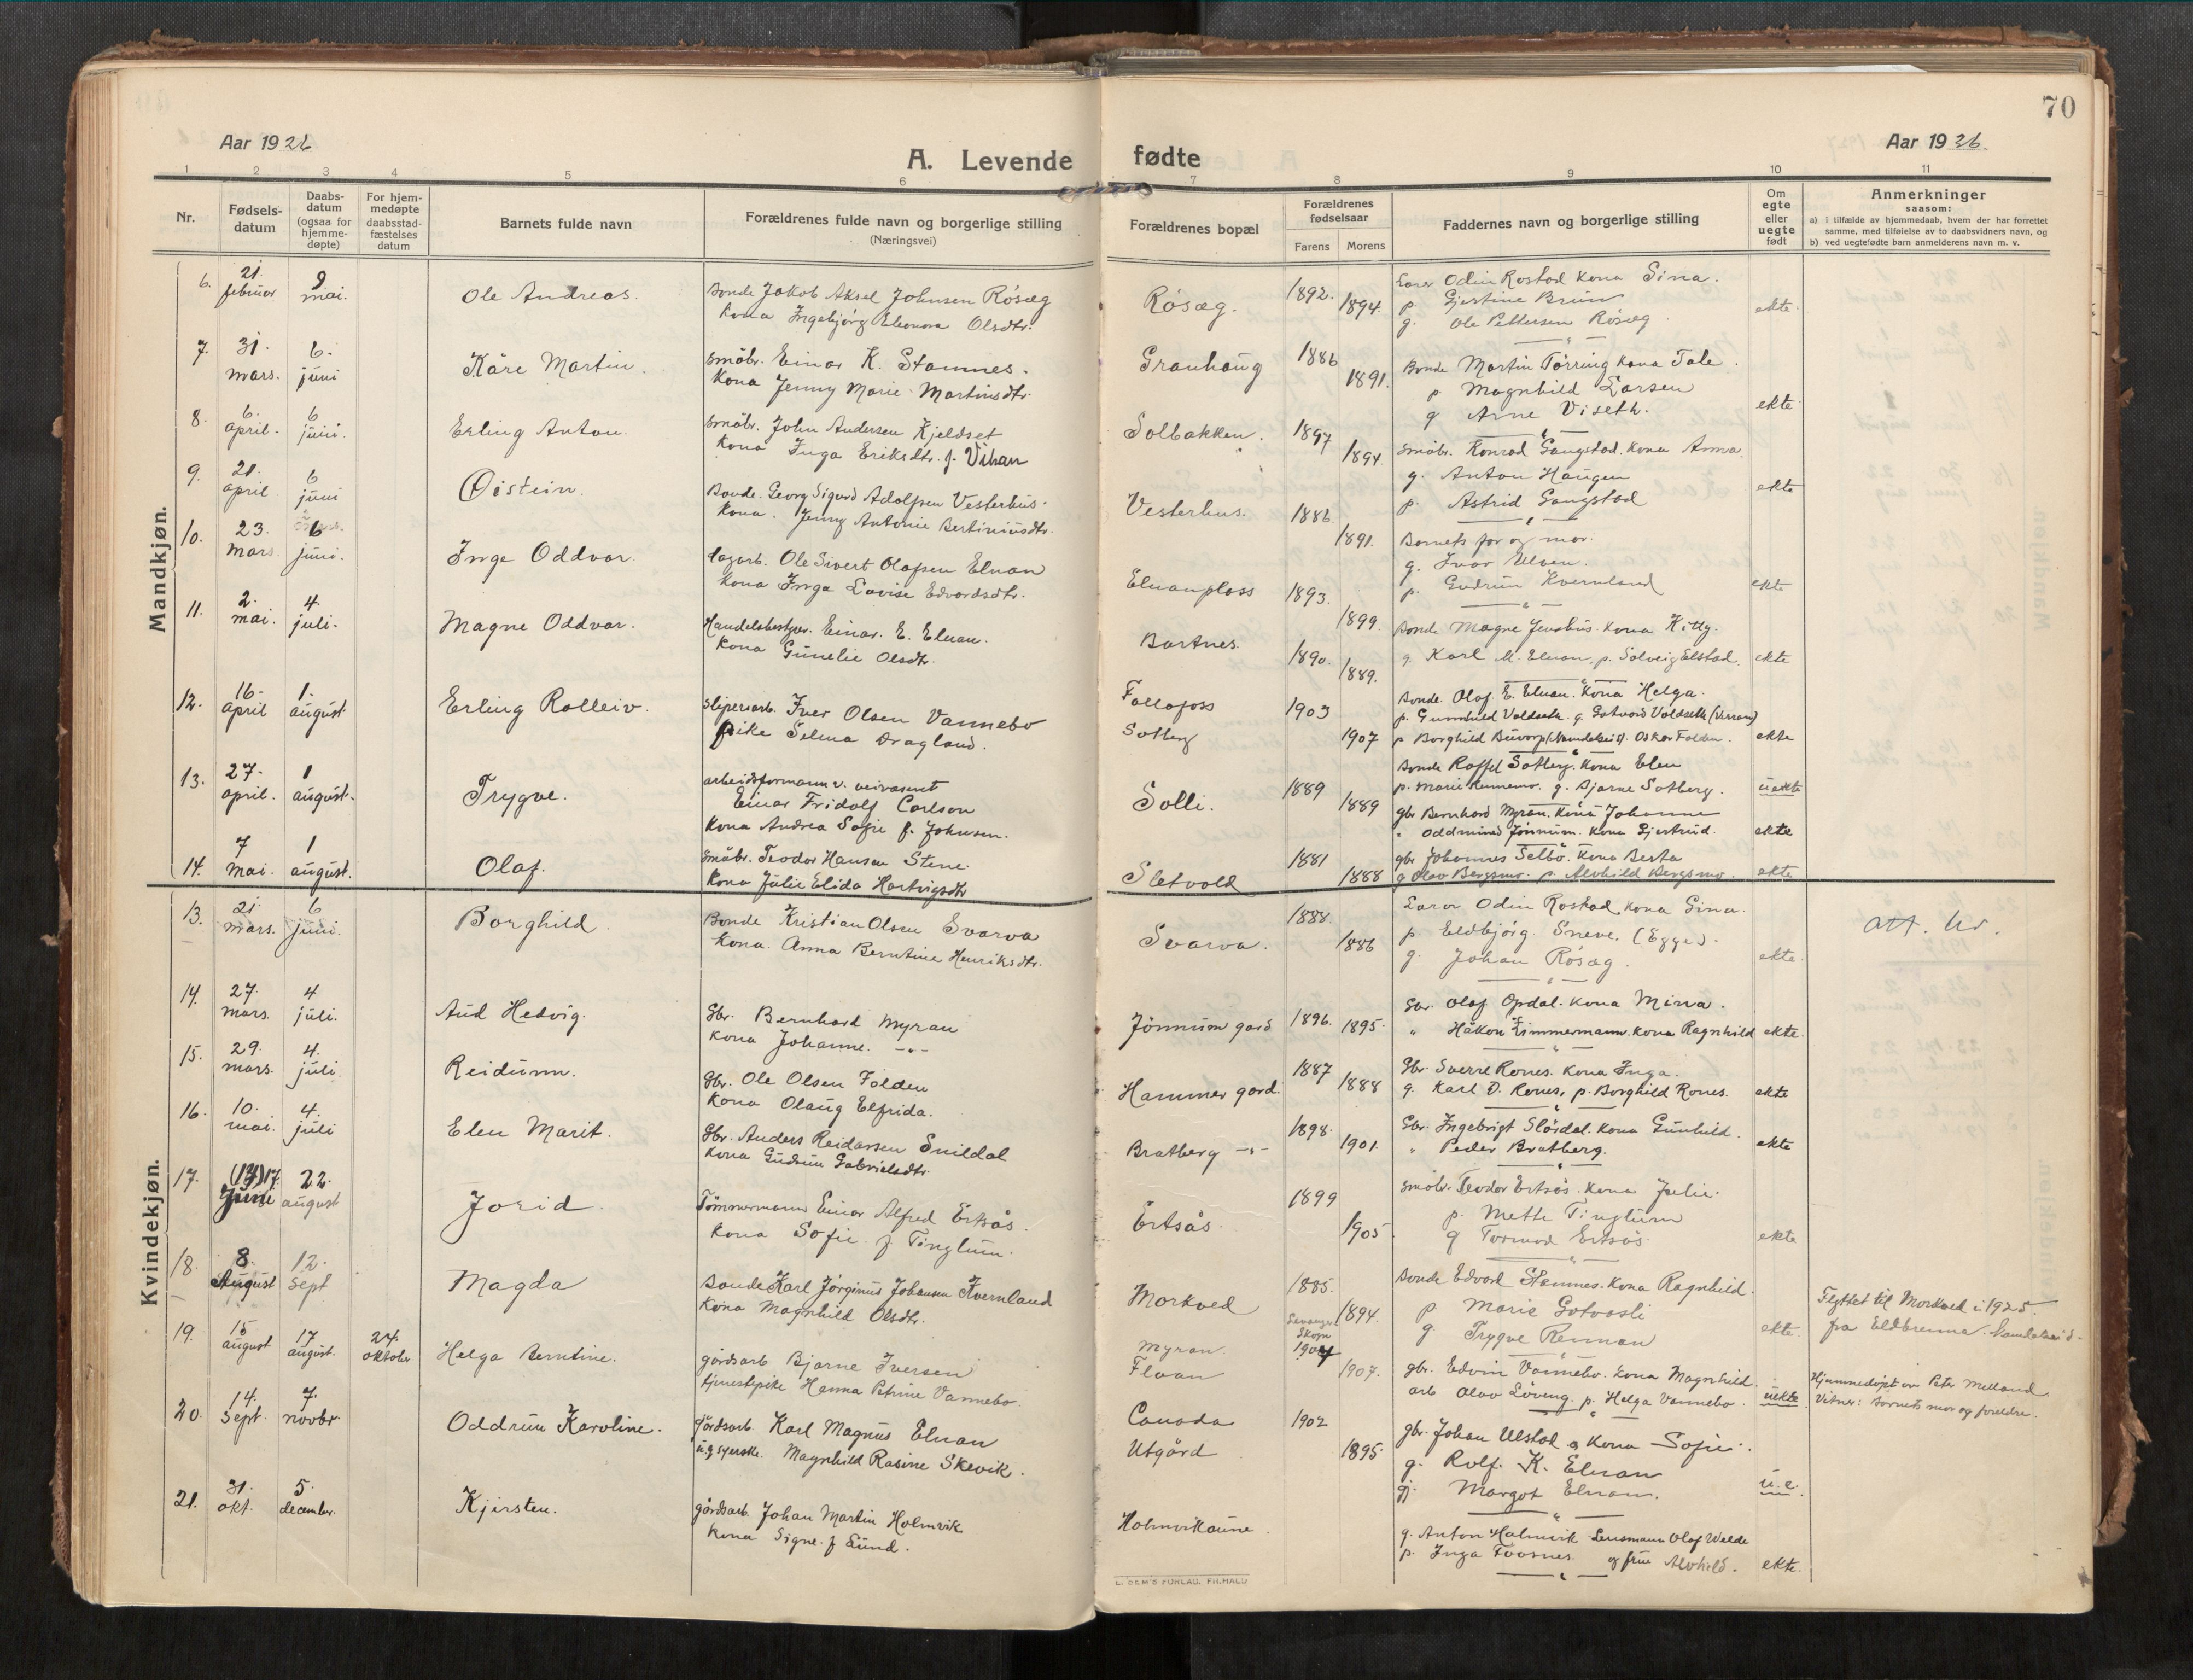 70
Aar 1926
Aar 1926.
A. Levende fødte
1 2 3 4 5 6 7 8 9 10 11
Nr.
Fødsels-
datum
Daabs-
datum
(ogsaa for
hjemme-
døpte)
For hjem-
medøpte
daabsstad-
fæstelses
datum
Barnets fulde navn
Forældrenes fulde navn og borgerlige stilling
(Næringsvei)
Forældrenes bopæl
Forældrenes
fødselsaar
Farens Morens
Faddernes navn og borgerlige stilling
Om
egte
eller
uegte
født
Anmerkninger
saasom:
a) i tilfælde av hjemmedaab, hvem der har forrettet
samme, med tilføielse av to daabsvidners navn, og
b) ved uegtefødte barn anmelderens navn m. v.
Mandkjøn.
6. 21. februar 9 mai. Ole Andreas.
Bonde Jakob Aksel Johnsen Rösæg
Kona Ingebjörg Eleonora Olsdtr.
Rösæg. 1892. 1894.
Lærer Odin Rostad kona Sina.
p Gjestine Brün
g. Ole Pettersen Rösæg
ekte.
7. 31. mars. 6. juni Kåre Martin.
Småbr. Einar K. Stamnes.
Kona Jenny Marie Martinsdtr.
Granhaug 1886 1891.
Bonde Martin Tørring kona Tale.
p Magnhild Larsen
g Arne Viseth.
ekte
8. 6. april. 6 juni. Erling Anton.
Småbr. John Andersen Kjeldset
Kona Inga Eriksdtr. f. Vikan
Solbakken. 1897 1894.
Småbr. Konrad Gangstad. kona Anna.
g. Anton Haugen
p. Astrid Gangstad
ekte
9. 21. april 6 juni Øistein.
Bonde. Georg Sigurd Adolfsen Vesterhus.
Kona. Jenny Antonie Bertiniusdtr.
Vesterhus. 1886 1891.
Barnets far og mor.
g. Ivar Ulven.
p. Gudrun Kvernland
ekte
10. 23. mars. 6 juni. Inge Oddvar.
Dagarb. Ole Sivert Olafsen Elnan
Kona Inga Lovise Edvardsdtr.
Elnanplass 1893. 1899.
Bonde Magne Jenshus. kona Kitty.
g. Karl M. Elnan, p. Solveig Elstad.
ekte
11. 2. mai. 4. juli. Magne Oddvar.
Handelsbestyr. Einar. E. Elnan.
Kona Gunelie Olsdtr.
Bartnes. 1890. 1889.
Bonde. Olaf E. Elnan. Kona Helga.
p. Gunnhild Valdseth. g. Gotvard Valdseth (Verran)
p Borghild Buvarp (Namdalseid). Oskar Folden.
ekte
12. 16. april 1. august Erling Rolleiv.
Sliperiarb. Iver Olsen Vannebo
Pike Selma Dragland.
Follafoss
Solberg 1903 1907
Bonde Roffel Solberg. Kona Elen
p. Marie g. Bjarne Solberg.
uekte
13. 27. april. 1 august. Trygve.
arbeidsformann v. veivæsenet
Einar Fridolf Carlson
Kona Andrea Sofie f. Johnsen.
Solli. 1889 1889
gbr Bernhard Myran. Kona Johanne
" Oddmund Jönnum. Kona Gjertrud.
ekte
14. 7 mai. 1 august. Olaf.
Småbr. Teodor Hansen Stene.
Kona Julie Elida Hartvigsdtr
Sletvold 1881 1888
gbr Johannes Selbo. Kona Berta
g Olav Bergsmo. p Alvhild Bergsmo.
ekte
Kvindekjøn.
13. 21. mars. 6 juni. Borghild.
Bonde Kristian Olsen Svarva
Kona. Anna Berntine Henriksdtr.
Svarva. 1888. 1886
Lærer Odin Rostad kona Sina.
p Eldbjörg Sneve. (Egge).
g. Johan Rösæg.
ekte.
att. ur.
14. 27. mars. 4 juli. Aud Hedvig.
Gbr. Bernhard Myran
Kona Johanne. -"-
Jönnum gard 1896. 1895.
Gbr. Olaf Opdal. kona Minna.
" Håkon Zimmermann. kona Ragnhild
ekte.
15. 29. mars. 4. juli Reidunn.
Gbr. Ole Olsen Folden
Kona Olaug Elfrida.
Hammer gard. 1887 1888
Gbr. Sverre Rones. kona Inga.
g. Karl O. Rones, p. Borghild Rones.
ekte
16. 10. mai. 4. juli Elen Marit.
Gbr. Anders Reidarsen Snildal
Kona Gudrun Gabrielsdtr.
Bratberg -"- 1898. 1901.
Gbr. Ingebrigt Slördal. kona Gunhild.
" Peder Bratberg.
ekte
17. (14) 17. Juni 22. august Jorid.
Tömmermann Einar Alfred Ertsås.
Kona Sofie f Tinglum.
Ertsås. 1899 1905
Småbr. Teodor Ertsås. kona Julie.
p. Mette Tinglum
g Tormod Ertsås
ekte
18. 8. August 12. sept Magda
Bonde Karl Jörginus Johansen Kvernland
Kona Magnhild Olsdtr.
Morkved 1885. 1894.
Bonde Edvard Stamnes. kona Ragnhild.
p Marie Gotvasli
g Trygve Rennan
ekte.
Flyttet til Morkved i 1925.
fra Eldbrenna. Namdalseid.
19. 15 august 17 august. 24. oktober Helga Berntine.
gårdsarb Bjarne Iversen
tjenestepike Hanna Petrine Vannebo.
Myran.
Floan
Skogn
1904 1907.
gbr. Edvin Vannebo. kona Magnhild.
arb Olav Löveng. p. Helga Vannebo.
uekte
Hjemmedöpt av Peter Melland.
Vitner: barnets mor og foreldre.
20. 14. sept. 7. novbr. Oddrun Karoline.
Gårdsarb. Karl Magnus Elnan
ug. syerske. Magnhild Rasine Skevik.
Canada
Utgård 1902 1895.
gbr. Johan Ulstad og kona Sofie.
g. Rolf. K. Elnan
p. Margot Elnan.
u.e.
21. 31. okt. 5. december. Kjirsten.
gårdsarb Johan Martin Holmvik
Kona Signe. f Sund.
Holmvikaune
g. Anton Holmvik Lensmann Olaf Welde
p. Inga Foosnes. og frue Alvhild.
ekte.
L. SEM'S FORLAG. FILHALD